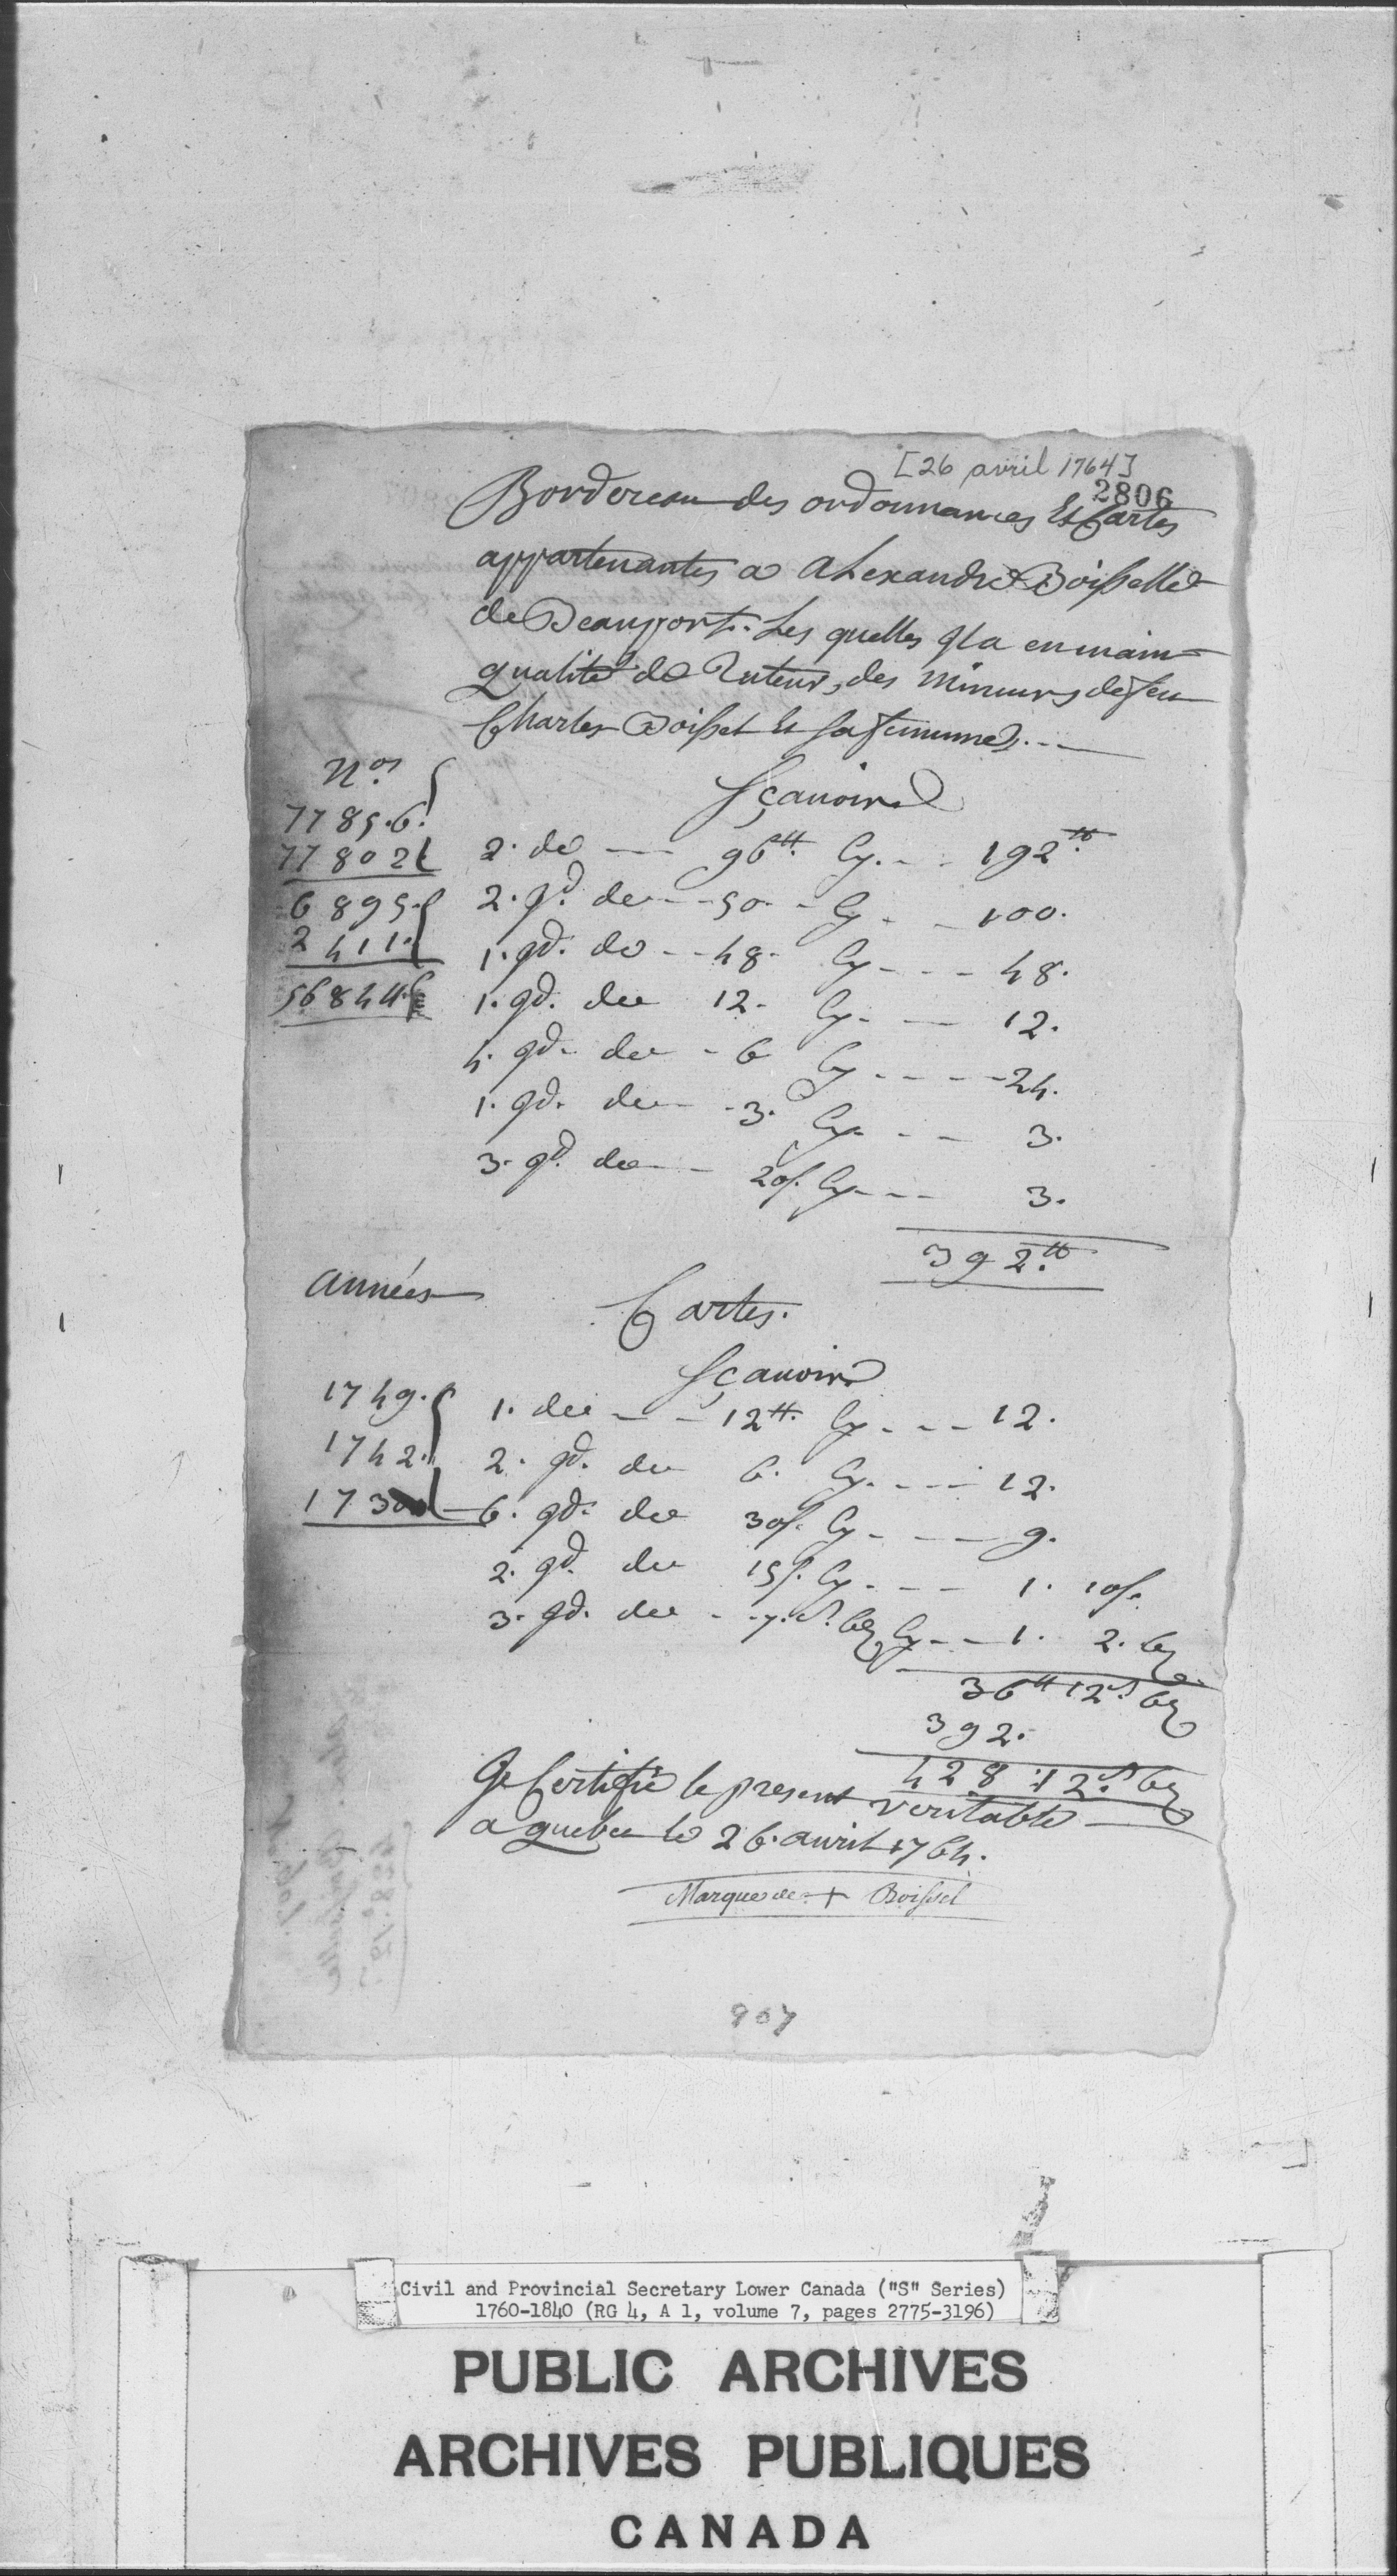 [26 avril 1764]
2806
Bordereau des ordonnances Et Cartes
appartenantes a alexandre Boisselle
de Beauport. Les quelles Jla en main
qualité de Tuteur, des Mineurs de feu
Charles Boissel Et sa femme. . —
Nos
Sçavoir
7785.6.
77802 2. de — 96tt. Cy. - - 192tt.
6895. 2. qd. de - - 50. - Cy - - 100.
2411. 1. qd. de - - 48. Cy - - - 48.
56844. 1. qd. de 12. Cy. - — 12.
4. qd. de - 6 Cy - - - - 24.
1. qd. de - - 3. Cy. - - — 3.
3. qd. de - - 20s. Cy - - - 3.
392.tt
Années
Cartes.
Sçavoir
1749. 1. de — - 12tt. Cy. - - - 12.
1742. 2. qd. de 6. Cy. - - - 12.
173 — 6. qd. de 30s. Cy - - — 9.
2. qd. de 15s. Cy. - - — 1. 10s.
3. qd. de - - 7.s. 6 Cy - - 1. 2. 6
36tt 12s. 6
392.
428 : 12.s 6
Je Certifie le present veritable
a quebec le 26. avril 1764.
Marque de + Boissel
907
Civil and Provincial Secretary Lower Canada ("S" Series)
1760-1840 (RG 4, A 1, volume 7, pages 2775-3196)
PUBLIC ARCHIVES
ARCHIVES PUBLIQUES
CANADA